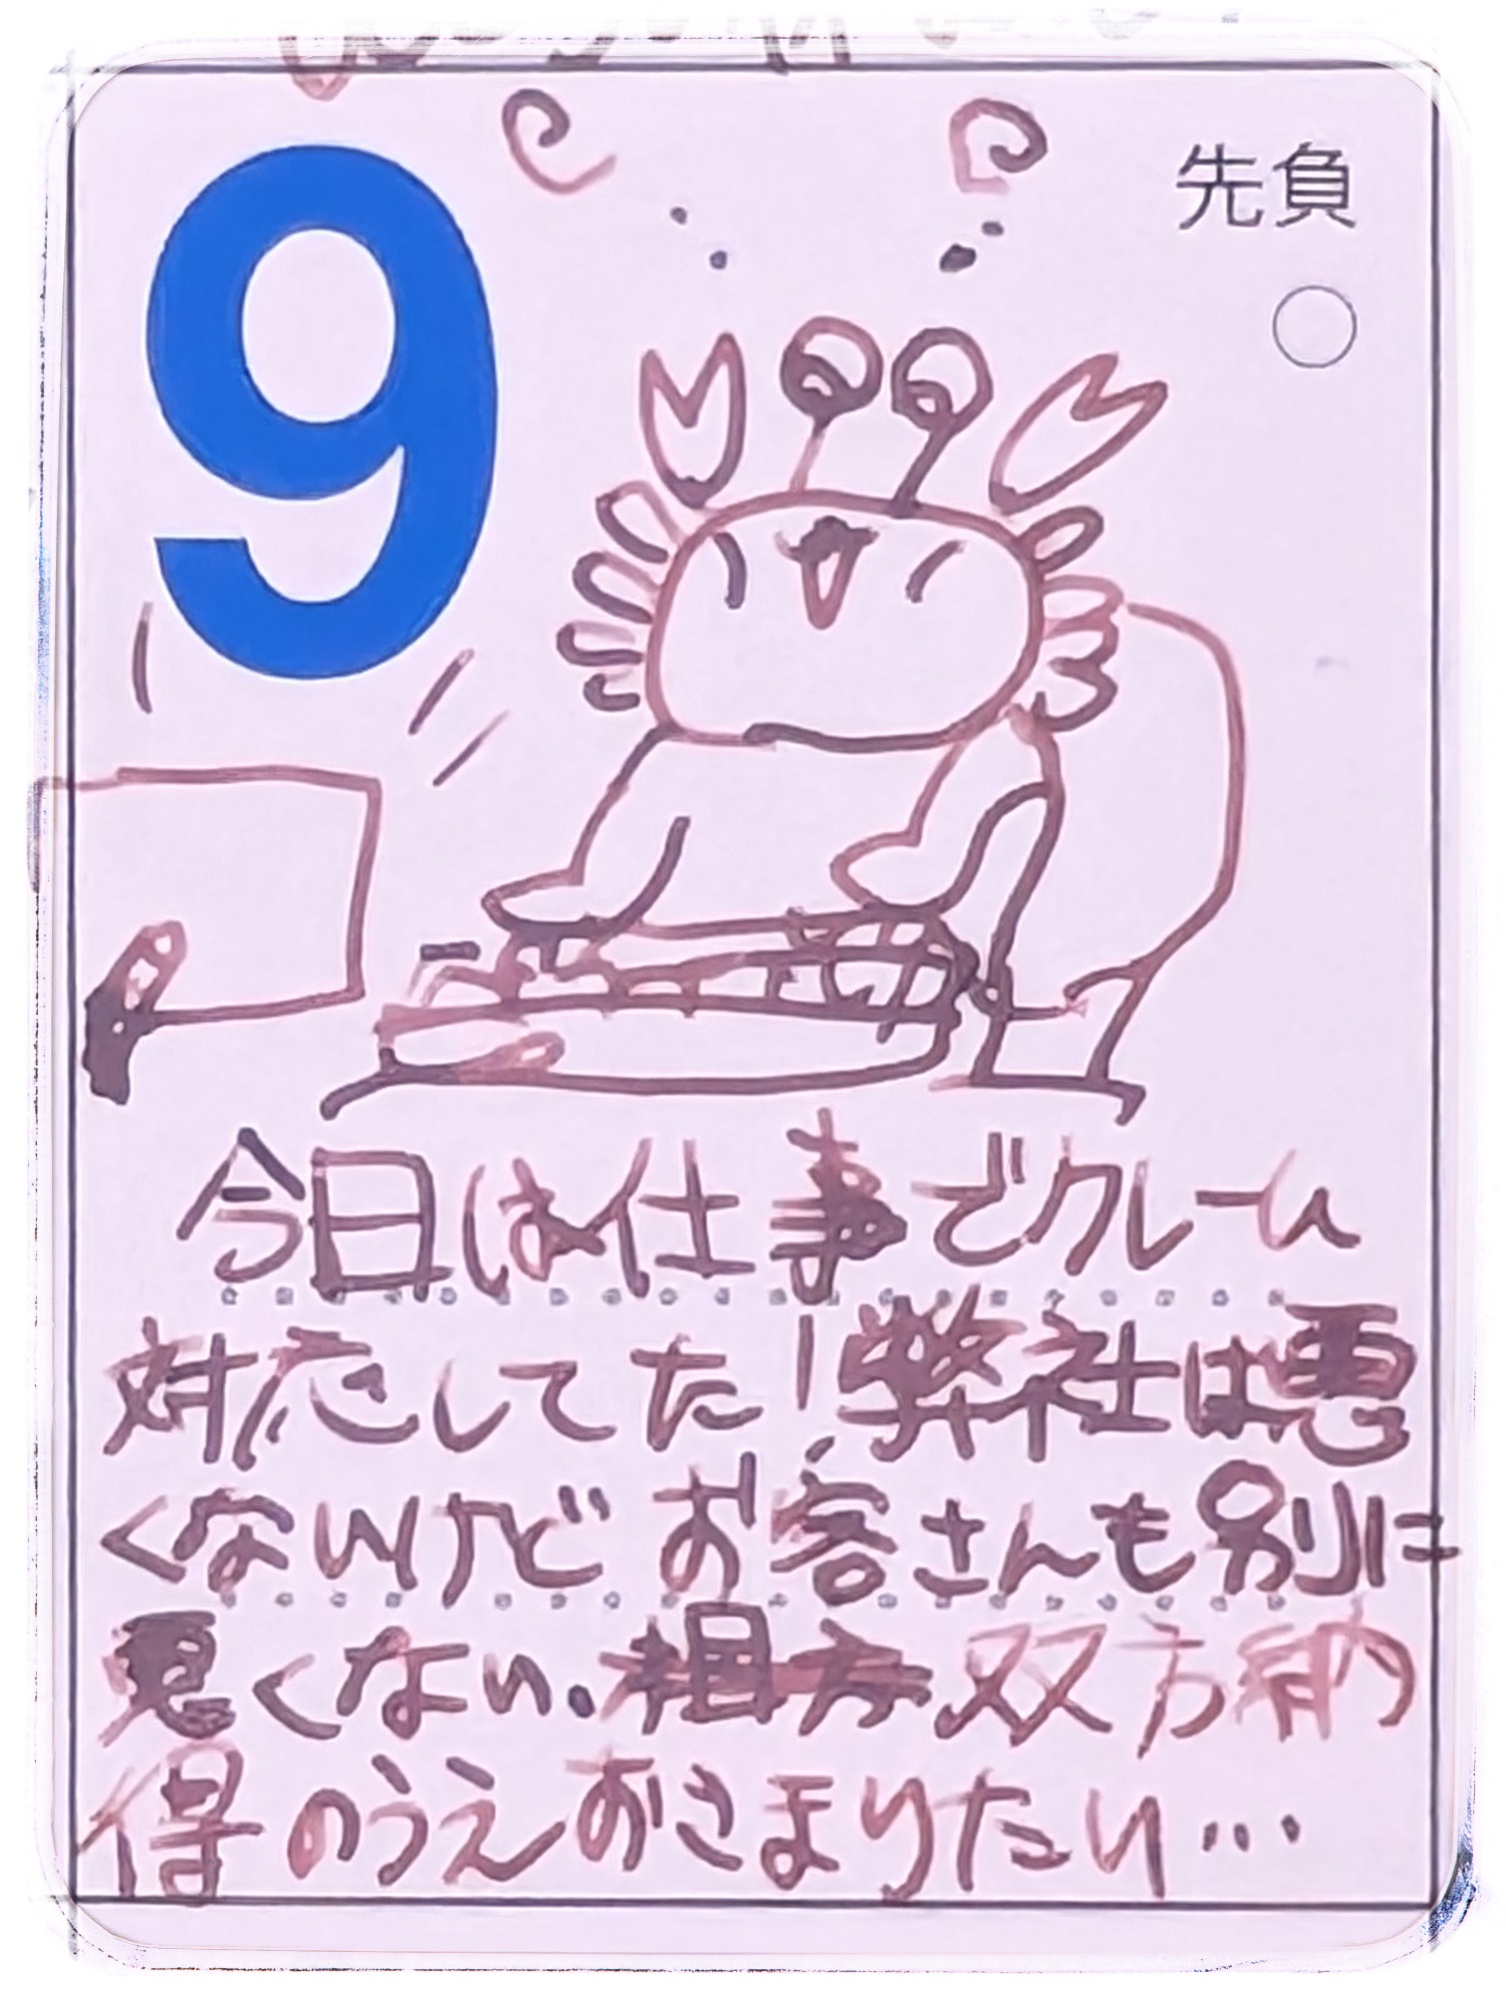 9
先負
今日は仕事でクレーム
対応してた!弊社は悪
くないけどお客さんも別に
悪くない.相方双方納
得のうえおさまりたい…